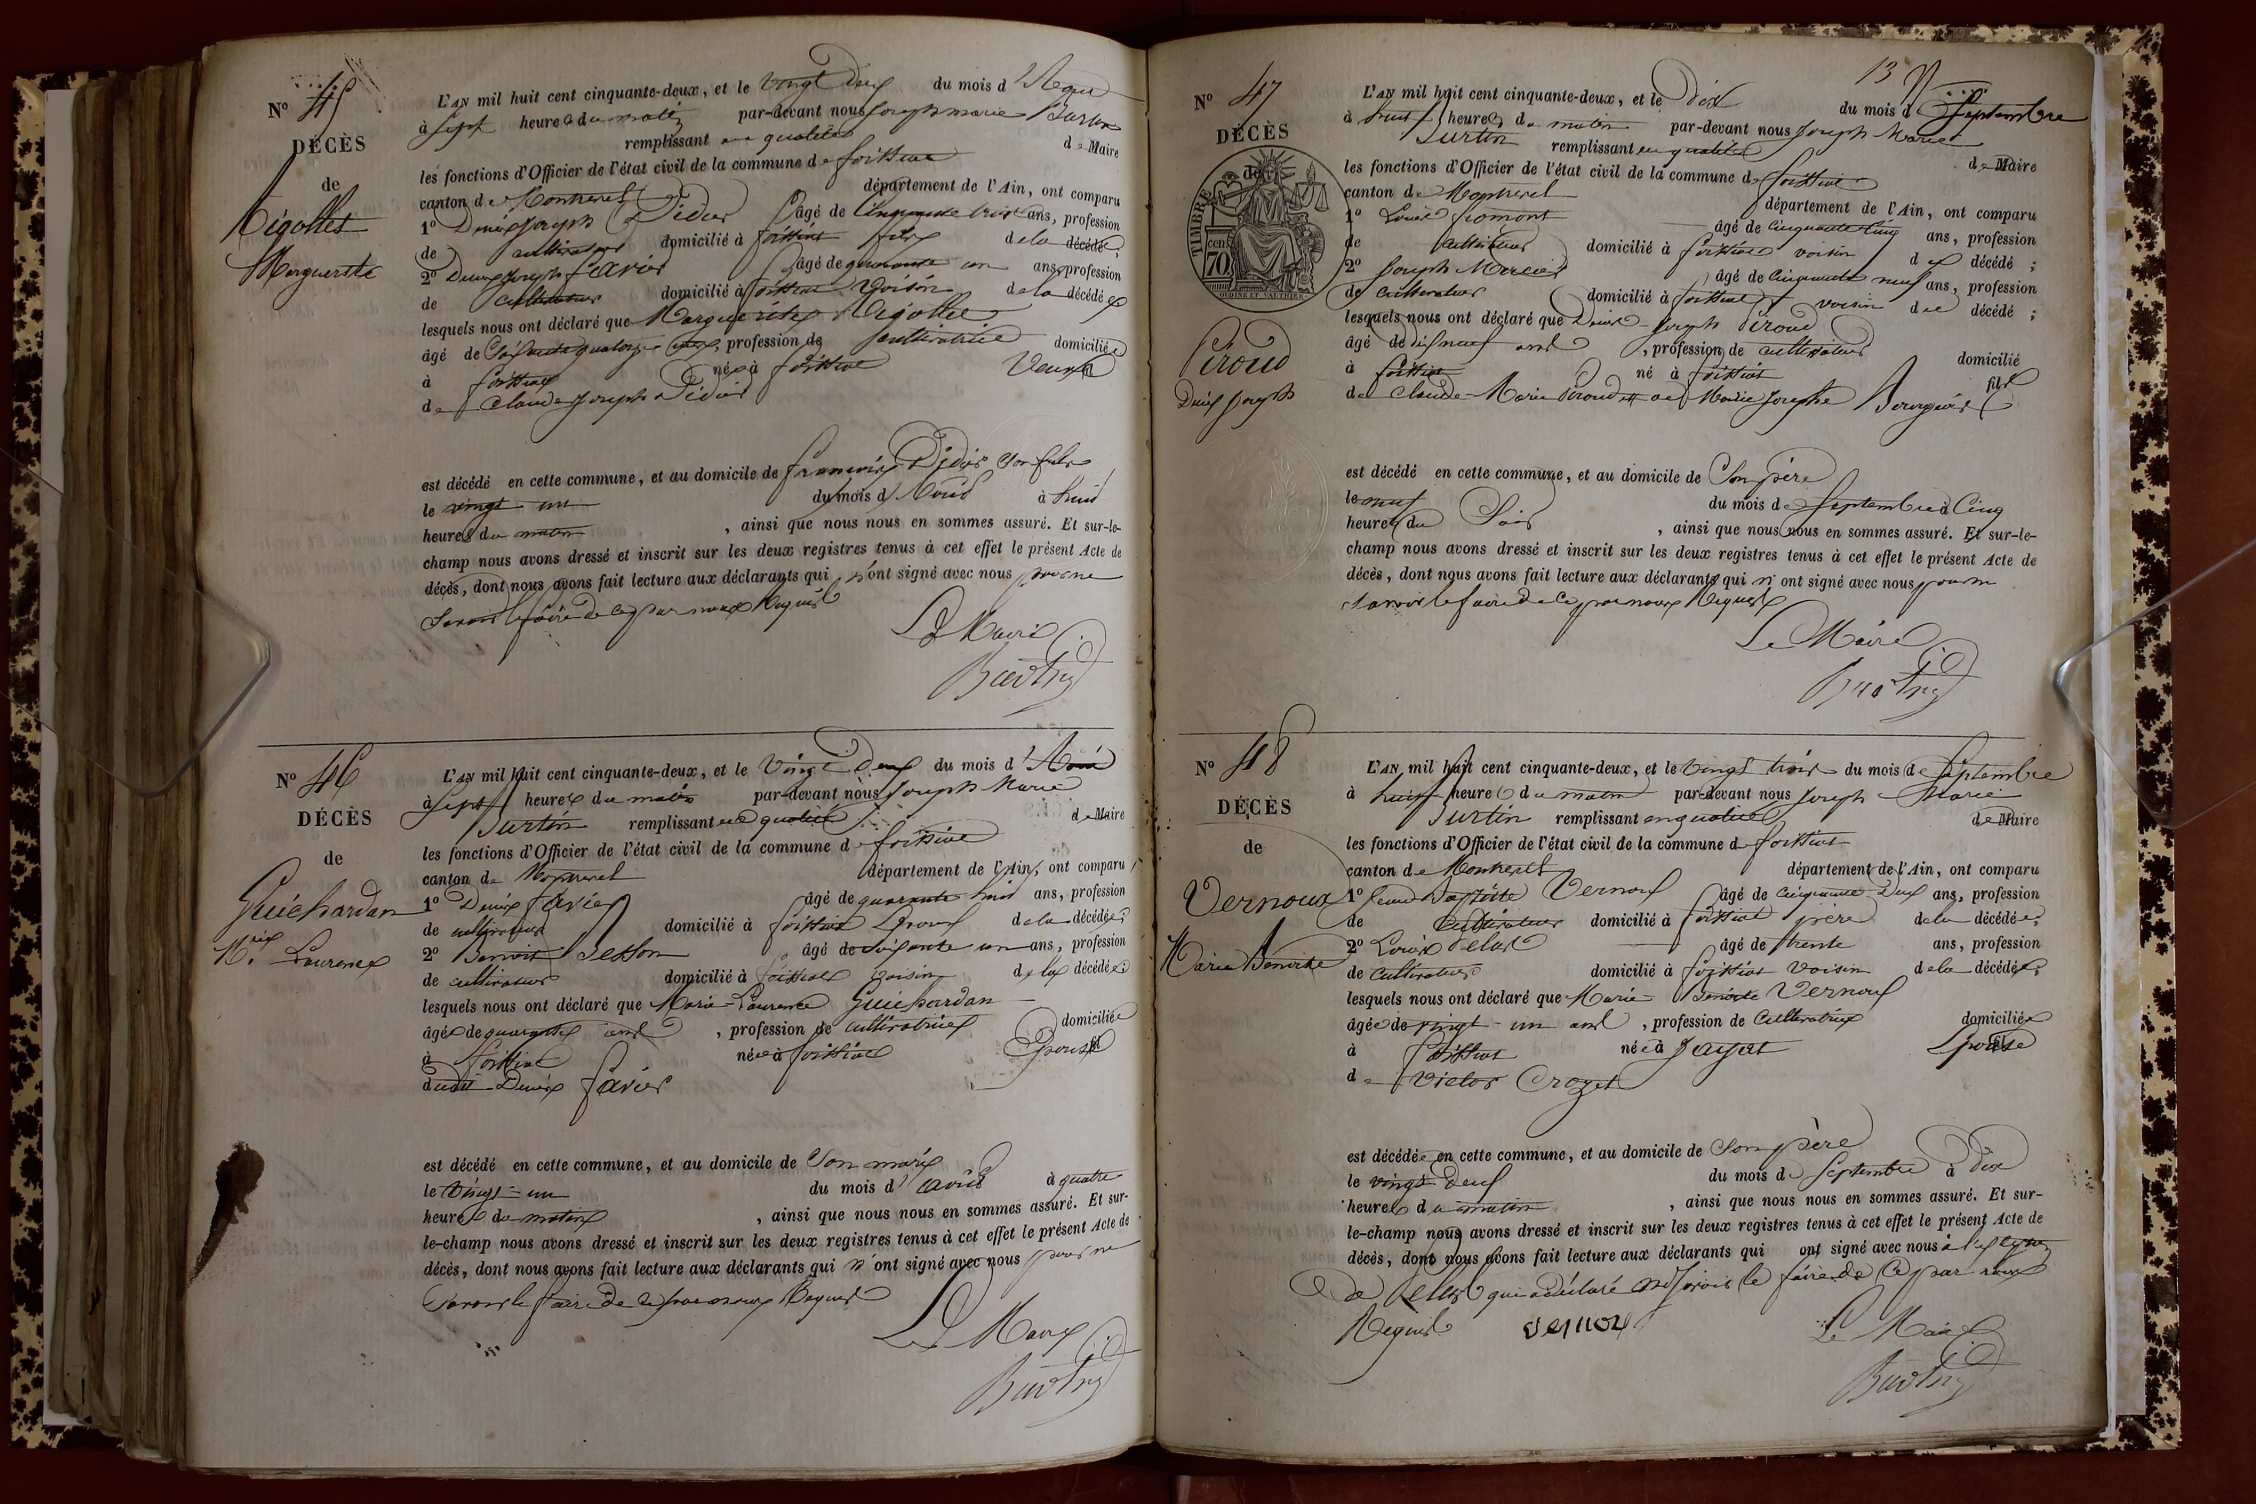 N° 45
DÉCÈS
de
Rigollet
Marguerite
L'AN mil huit cent cinquante-deux, et le vingt deux du mois d'
à sept heures du matin par-devant nous Joseph marie Burtin
remplissant en qualité de Maire
les fonctions d'Officier de l'état civil de la commune de foissiat
canton de Montrevel département de l'Ain, ont comparu
1° Denis Joseph Didier âgé de Cinquante trois ans, profession
de cultivateur domicilié à foissiat fils de la décédé ;
2° Denis Joseph favier âgé de quarante un ans, profession
de cultivateur domicilié à foissiat voisin de la décédée
lesquels nous ont déclaré que Marguerite Rigollet
âgé de Soixante quatorze ans, profession de cultivatrice domiciliée
à foissiat née à foissiat Veuve
de Claude Joseph Didier
est décédé en cette commune, et au domicile de françois Didier son fils
le vingt un du mois d'Aout à huit
heures du matin , ainsi que nous nous en sommes assuré. Et sur-le-
champ nous avons dressé et inscrit sur les deux registres tenus à cet effet le présent Acte de
décès, dont nous avons fait lecture aux déclarants qui n'ont signé avec nous pour ne
savoir le faire de ce par nous Requis
Le Maire
Burtin
N° 46
DÉCÈS
de
Guichardan
M.rie Laurence
L'AN mil huit cent cinquante-deux, et le vingt Deux du mois d'Aout
à sept heures du matin par-devant nous Joseph Marie
Burtin remplissant en qualité de Maire
les fonctions d'Officier de l'état civil de la commune de foissiat
canton de Montrevel département de l'Ain, ont comparu
1° Denis favier âgé de quarante huit ans, profession
de cultivateur domicilié à foissiat Epoux de la décédée ;
2° Benoit Sesson âgé de soixante un ans, profession
de cultivateur domicilié à foissiat voisin de la décédée ;
lesquels nous ont déclaré que Marie Laurence Guichardan
âgée de quarante ans , profession de cultivatrice domiciliée
à foissiat née à foissiat Epouse
dudit Denis favier
est décédé en cette commune, et au domicile de Son mari
le vingt un du mois d'aout à quatre
heures du matin , ainsi que nous nous en sommes assuré. Et sur-
le-champ nous avons dressé et inscrit sur les deux registres tenus à cet effet le présent Acte de
décès, dont nous avons fait lecture aux déclarants qui n'ont signé avec nous pour ne
savoir le faire de ce par nous Requis
Le Maire
Burtin
13
N° 47
DÉCÈS
de
TIMBRE
70 cent
OUDINE ET VAUTHIER
Péroud
Denis Joseph
L'AN mil huit cent cinquante-deux, et le dix du mois de Septembre
à huit heures du matin par-devant nous Joseph Marie
Burtin remplissant en qualité de Maire
les fonctions d'Officier de l'état civil de la commune de foissiat
canton de Montrevel département de l'Ain, ont comparu
1° Louis fromont âgé de cinquante cinq ans, profession
de cultivateur domicilié à foissiat voisin du décédé ;
2° Joseph Mercier âgé de cinquante neuf ans, profession
de cultivateur domicilié à foissiat voisin du décédé ;
lesquels nous ont déclaré que Denis Joseph Péroud
âgé de dix neuf ans , profession de cultivateur domicilié
à foissiat né à foissiat fils
de Claude Marie Péroud et de Marie Josephe Bourgeois
est décédé en cette commune, et au domicile de Son père
le neuf du mois de Septembre à Cinq
heures du Soir , ainsi que nous nous en sommes assuré. Et sur-le-
champ nous avons dressé et inscrit sur les deux registres tenus à cet effet le présent Acte de
décès, dont nous avons fait lecture aux déclarants qui n'ont signé avec nous pour ne
savoir le faire de ce par nous Requis
Le Maire
Burtin
N° 48
DÉCÈS
de
Vernoux
Marie Benoite
L'AN mil huit cent cinquante-deux, et le vingt trois du mois de Septembre
à huit heures du matin par-devant nous Joseph Marie
Burtin remplissant en qualité de Maire
les fonctions d'Officier de l'état civil de la commune de foissiat
canton de Montrevel département de l'Ain, ont comparu
1° Jean Baptiste Vernoux âgé de cinquante Deux ans, profession
de Cultivateur domicilié à foissiat père de la décédée ;
2° Louis âgé de trente ans, profession
de cultivateur domicilié à foissiat voisin de la décédée ;
lesquels nous ont déclaré que Marie Benoite Vernoux
âgée de vingt un ans , profession de Cultivatrice domiciliée
à foissiat née à Jayat Epouse
de Victor Crozet
est décédée en cette commune, et au domicile de Son père
le vingt Deux du mois de Septembre à Dix
heures du matin , ainsi que nous nous en sommes assuré. Et sur-
le-champ nous avons dressé et inscrit sur les deux registres tenus à cet effet le présent Acte de
décès, dont nous avons fait lecture aux déclarants qui ont signé avec nous à l'exception
de qui a déclaré ne savoir le faire de Ce par nous
Requis vernoux Le Maire
Burtin